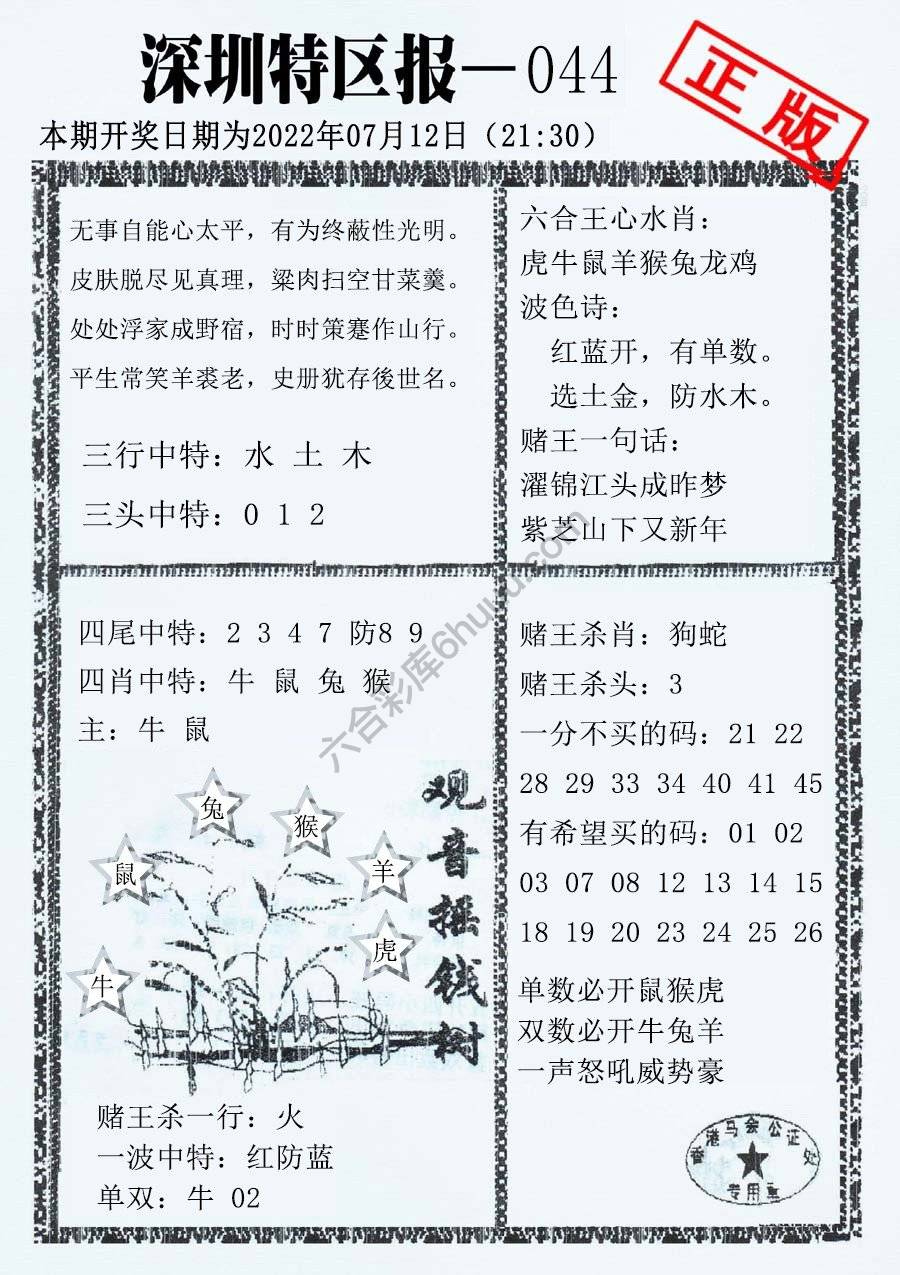 深圳特区报—044
正版
本期开奖日期为2022年07月12日（21:30）
无事自能心太平，有为终蔽性光明。
皮肤脱尽见真理，粱肉扫空甘菜羹。
处处浮家成野宿，时时策蹇作山行。
平生常笑羊裘老，史册犹存後世名。
三行中特：水 土 木
三头中特：0 1 2
六合王心水肖：
虎牛鼠羊猴兔龙鸡
波色诗：
红蓝开，有单数。
选土金，防水木。
赌王一句话：
濯锦江头成昨梦
紫芝山下又新年
四尾中特：2 3 4 7 防8 9
四肖中特：牛 鼠 兔 猴
主：牛 鼠
兔
猴
鼠
羊
虎
牛
观音摇钱树
赌王杀一行：火
一波中特：红防蓝
单双：牛 02
赌王杀肖：狗蛇
赌王杀头：3
一分不买的码：21 22
28 29 33 34 40 41 45
有希望买的码：01 02
03 07 08 12 13 14 15
18 19 20 23 24 25 26
单数必开鼠猴虎
双数必开牛兔羊
一声怒吼威势豪
香港马会公证处
专用章
六合彩库6huuu.com